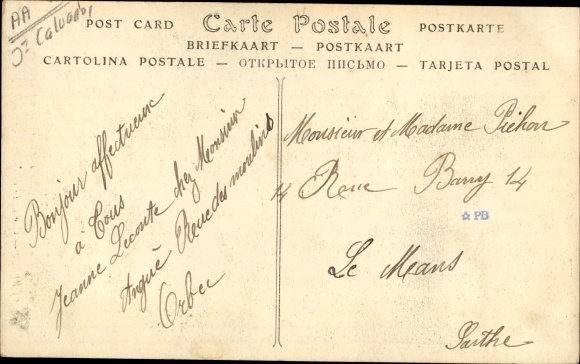 AA
Jn Calvados
POST CARD Carte Postale POSTKARTE
BRIEFKAART — POSTKAART
CARTOLINA POSTALE — ОТКРЫТОЕ ПИСЬМО — TARJETA POSTAL
Bonjour affectueux
à Tous
Jeanne Leconte chez Monsieur
Anguè Rue des moulins
Orbec
Monsieur et Madame Pichon
14 Rue Barry 14
PB
Le Mans
Sarthe